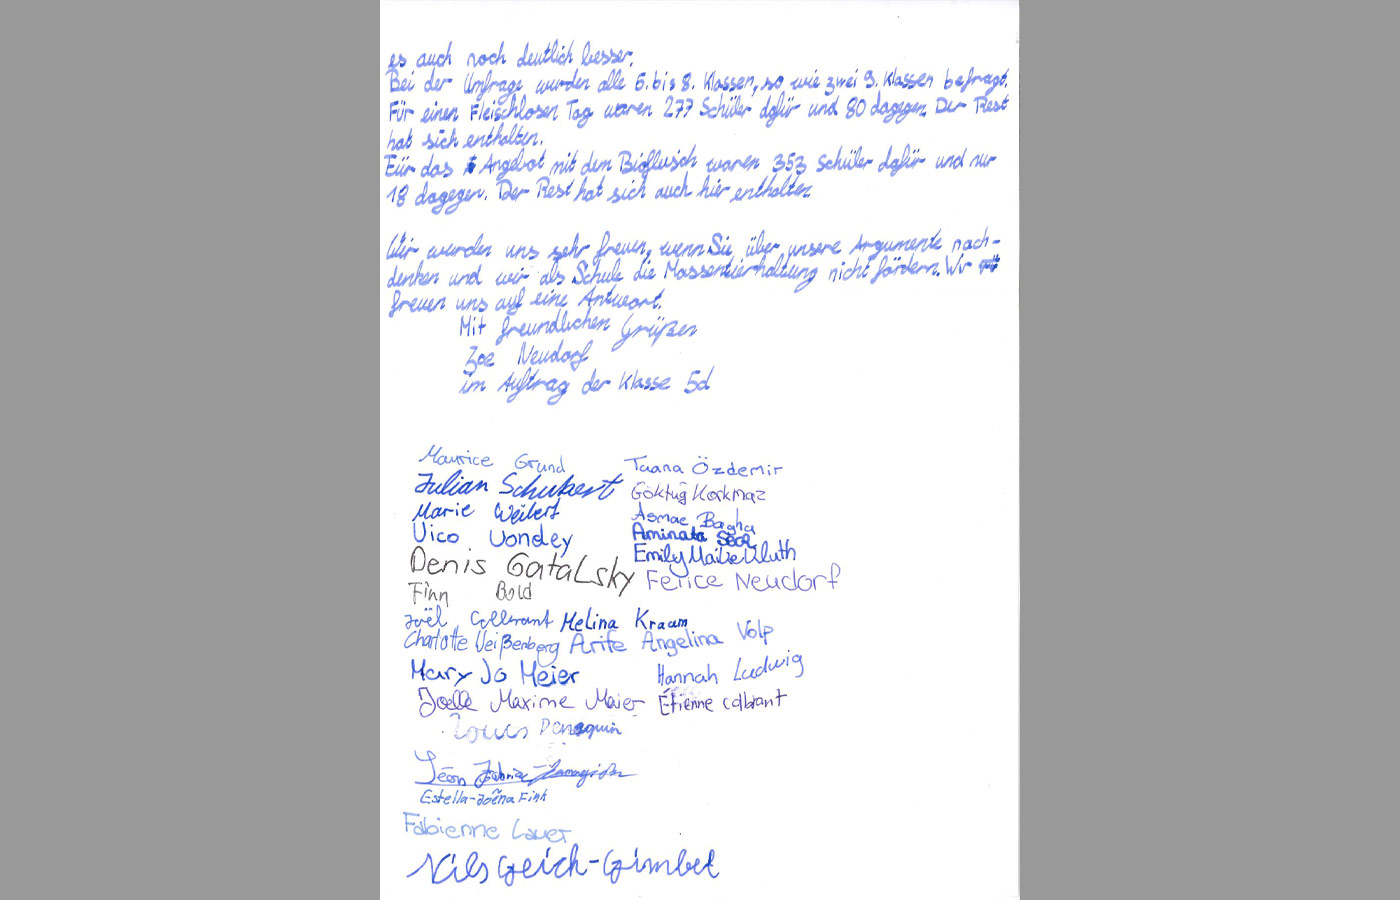 es auch noch deutlich besser.
Bei der Umfrage wurden alle 5. bis 8. Klassen, so wie zwei 9. Klassen befragt.
Für einen Fleischlosen Tag waren 277 Schüler dafür und 80 dagegen. Der Rest
hat sich enthalten.
Für das Angebot mit dem Biofleisch waren 353 Schüler dafür und nur
18 dagegen. Der Rest hat sich auch hier enthalten.
Wir würden uns sehr freuen, wenn Sie über unsere Argumente nach-
denken und wir als Schule die Massentierhaltung nicht fördern. Wir
freuen uns auf eine Antwort.
Mit freundlichen Grüßen
Zoe Neudorf
im Auftrag der Klasse 5d
Maurice Grund Tuana Özdemir
Julian Schubert Göktuğ Korkmaz
Marie Weilert Asmae
Vico Vondey Aminata
Denis Gatalsky Emily
Finn Bold Felice Neudorf
Joël Collerant Melina Kraam
Charlotte Weißenberg Arife Angelina Volp
Mary Jo Meier Hannah Ludwig
Joelle Maxime Maier Étienne
Louis
Léon
Estella-Joëna Fink
Fabienne Lauer
Nils Geich-Gimbel